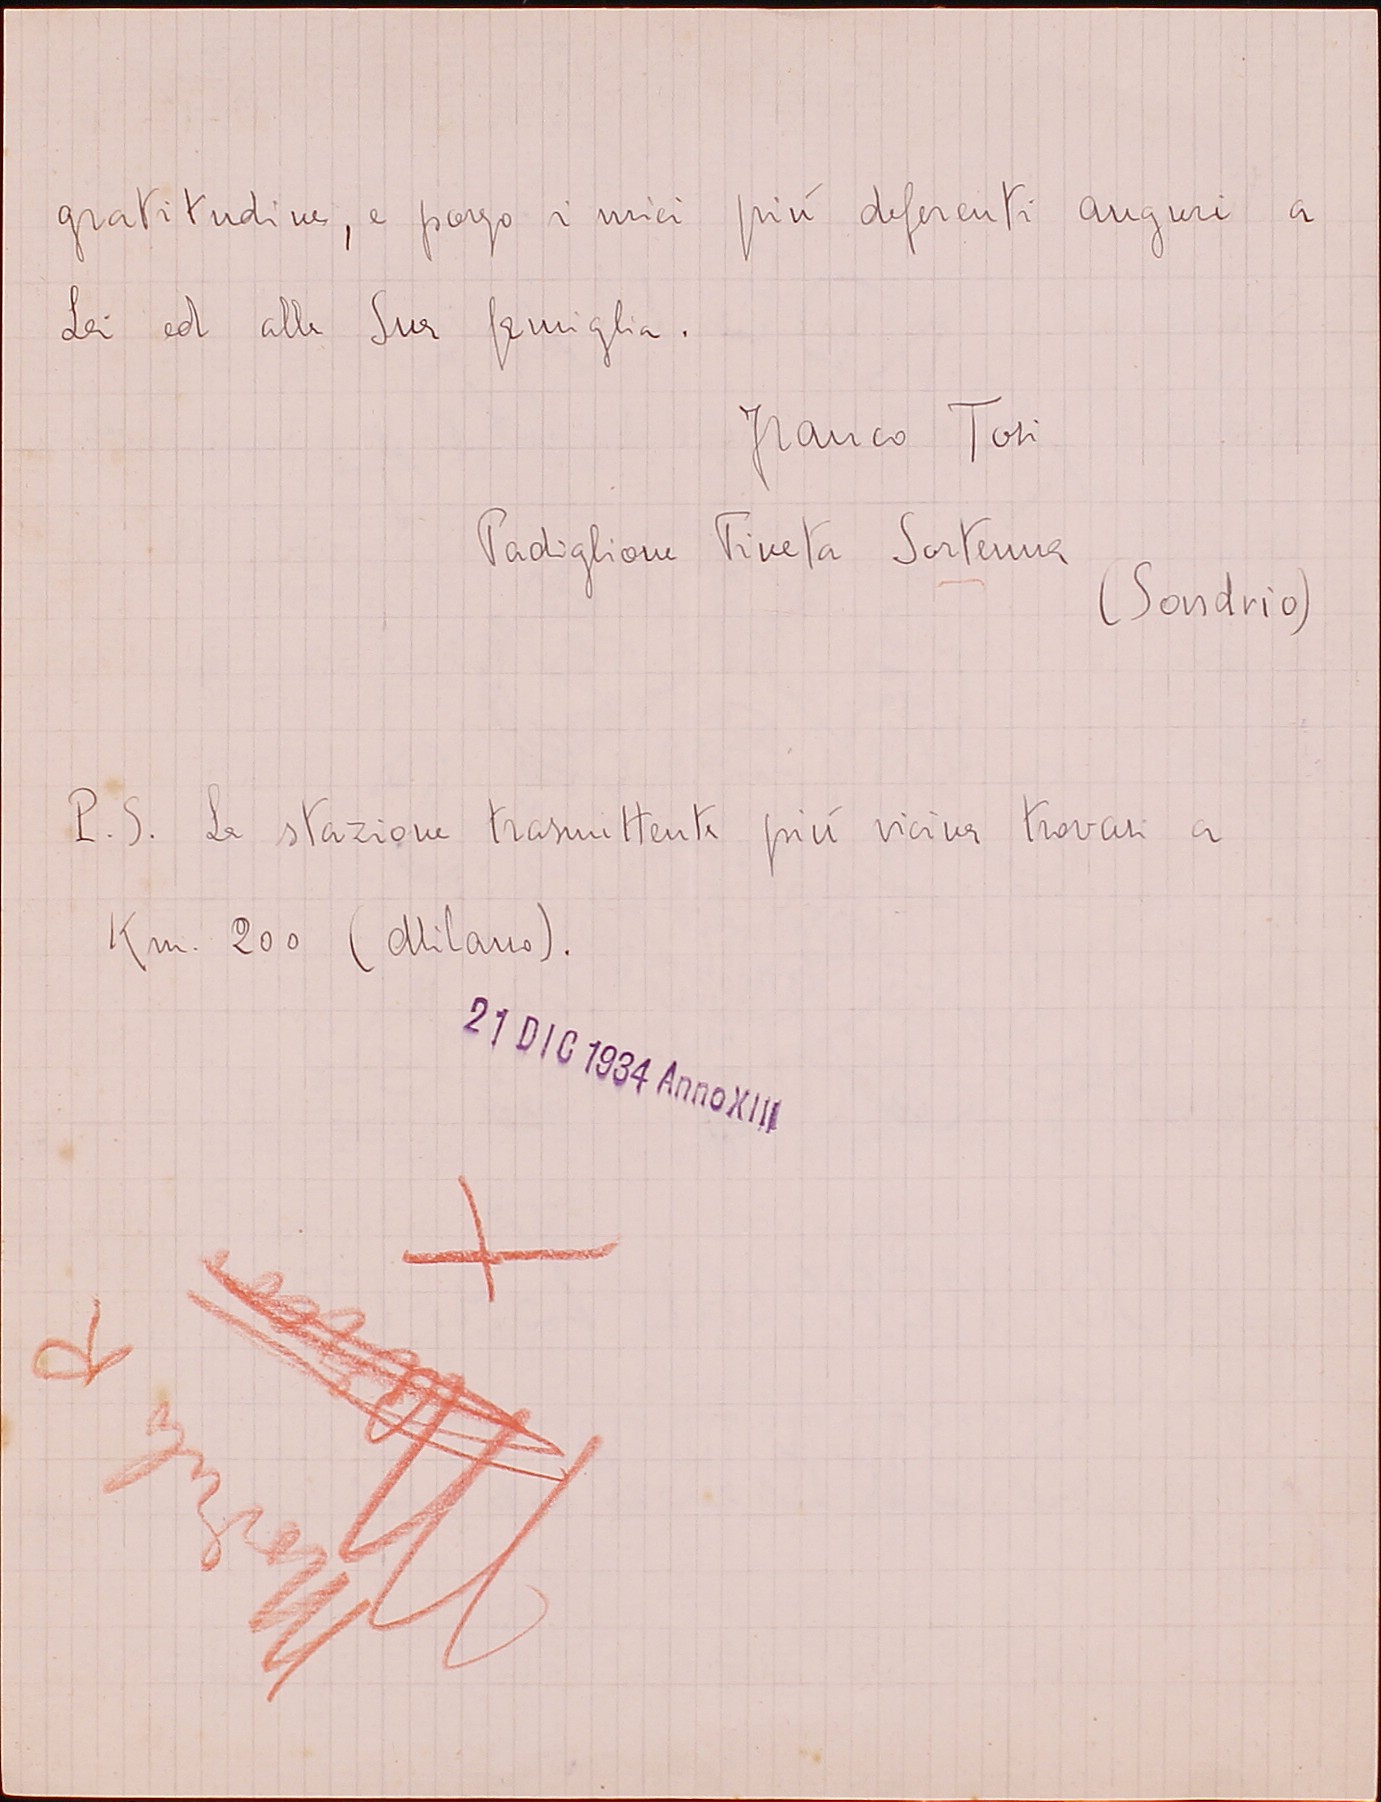 gratitudine, e porgo i miei più deferenti auguri a
Lei ed alla Sua famiglia.
Franco Tosi
Padiglione Pineta Sortenna
(Sondrio)
P.S. La stazione trasmittente più vicina trovasi a
Km. 200 (Milano).
21 DIC 1934 Anno XIII